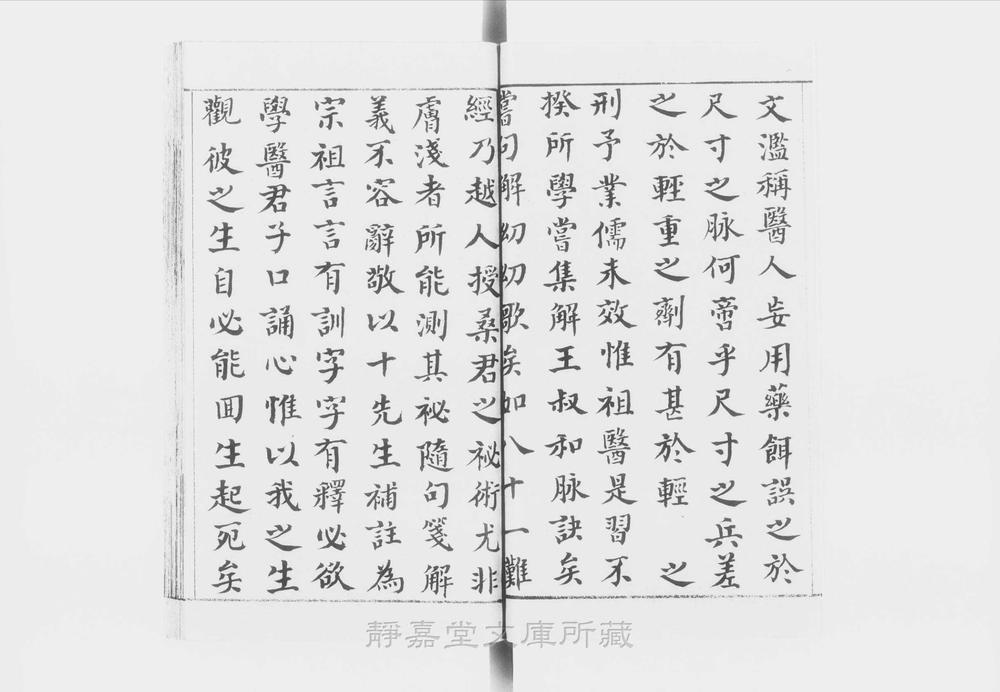 文濫稱醫人妄用藥餌誤之於
尺寸之脉何啻乎尺寸之兵差
之於輕重之劑有甚於輕 之
刑予業儒未效惟祖醫是習不
揆所學嘗集解王叔和脉訣矣
嘗句解幼幼歌矣如八十一難
經乃越人授桑君之袐術尤非
膚淺者所能測其袐隨句箋解
義不容辭敬以十先生補註為
宗祖言言有訓字字有釋必欲
學醫君子口誦心惟以我之生
觀彼之生自必能囬生起死矣
靜嘉堂文庫所藏